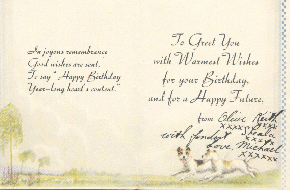 In joyous remembrance
Good wishes are sent,
To say "Happy Birthday
Year-long heart's content."
To Greet You
with Warmest Wishes
for your Birthday,
and for a Happy Future.
from Keith
xxxx
with fondest
Love. Michael
xxxxxx